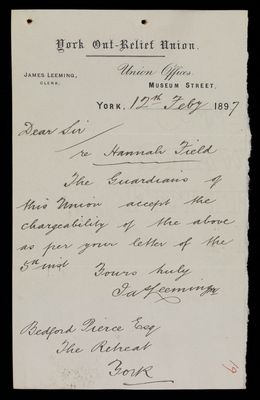 York Out-Relief Union.
Union Offices.
JAMES LEEMING,
CLERK.
MUSEUM STREET,
YORK, 12th Feby 1897
Dear Sir
re Hannah Field
The Guardians of
this Union accept the
chargeability of the above
as per your letter of the
5th inst
Yours truly
Jas Leeming
Bedford Pierce Esq
The Retreat
York